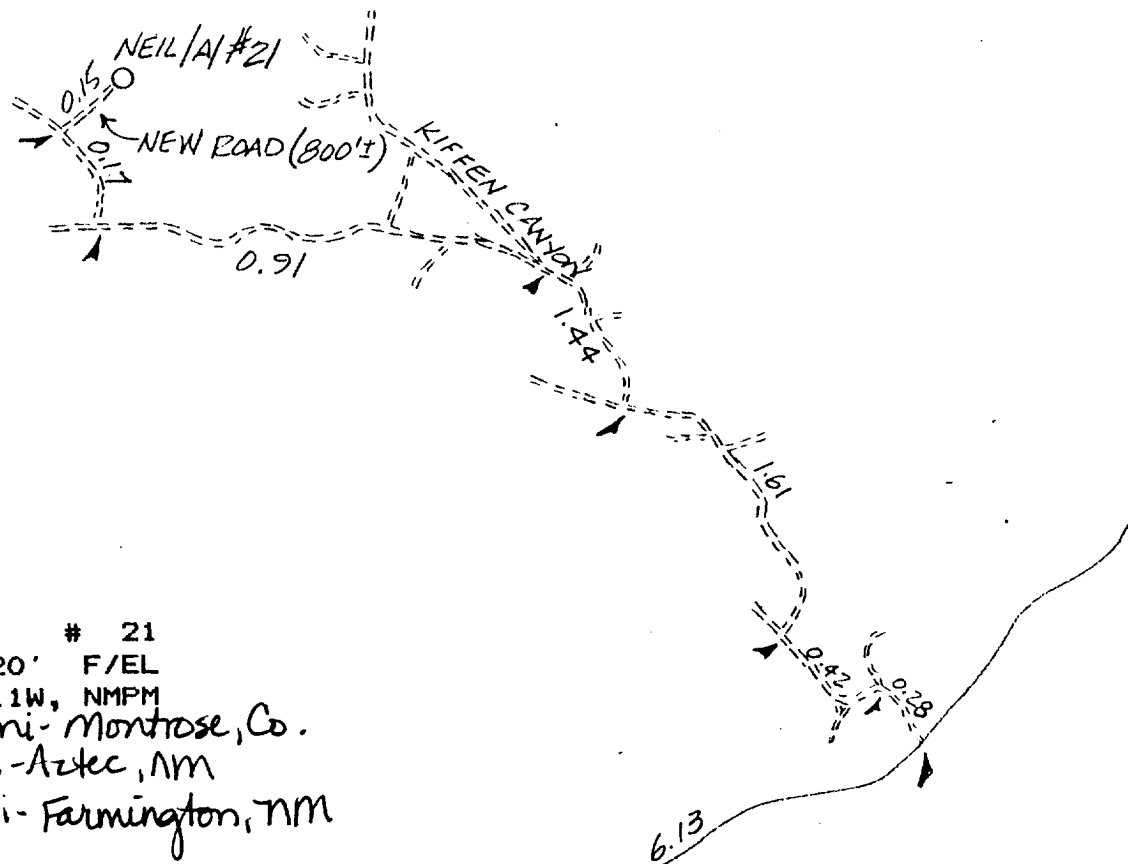 NEIL/A/#21
0.15
NEW ROAD (800'±)
0.17
KIFFEN CANYON
0.91
1.44
1.61
0.42
0.28
6.13
# 21
20' F/EL
1W, NMPM
Montrose, Co.
-Aztec, NM
- Farmington, NM